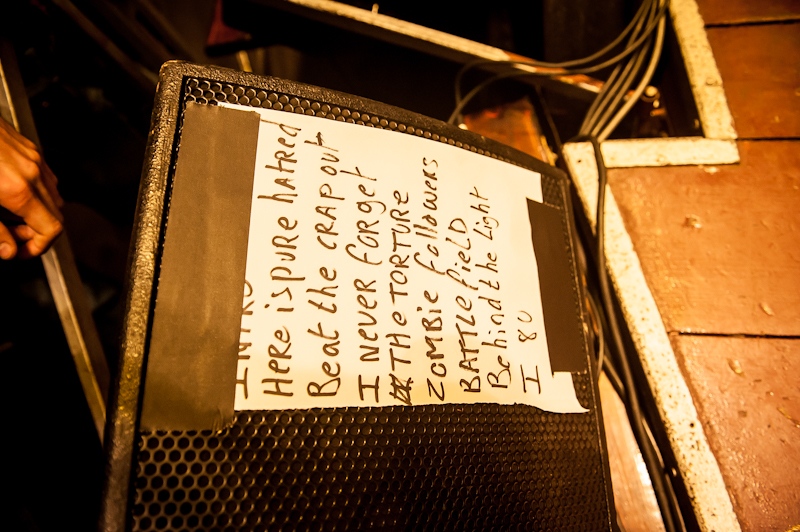 INTRO
Here is pure hatred
Beat the CRAP out
I NEVER Forget
THE TORTURE
ZOMBIE Followers
BATTLEFIELD
Behind the Light
I 80